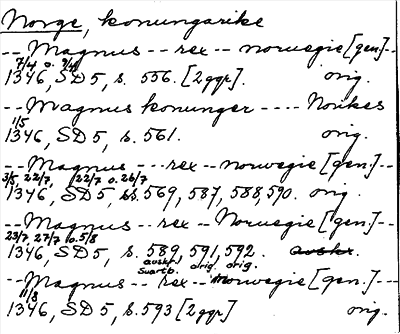 Norge, konungarike
-- Magnus -- rex -- norwegie [gen.] --
7/4 o. 9/4
1346, SD 5, s. 556. [2 ggr.] orig.
-- Magnus konunger ---- Norikes
1/5
1346, SD 5, s. 561. orig.
-- Magnus --- rex -- norwegie [gen.] --
3/5, 22/7, 22/7 o. 26/7
1346, SD 5, ss. 569, 587, 588, 590. orig.
-- Magnus -- rex -- Norwegie [gen.] --
23/7 27/7 o. 5/8
1346, SD 5, s. 589, 591, 592. avskr.
avskr. orig. orig.
Svartb.
-- Magnus -- rex -- Norwegie [gen.] ---
11/8
1346, SD 5, s. 593 [2 ggr] orig.